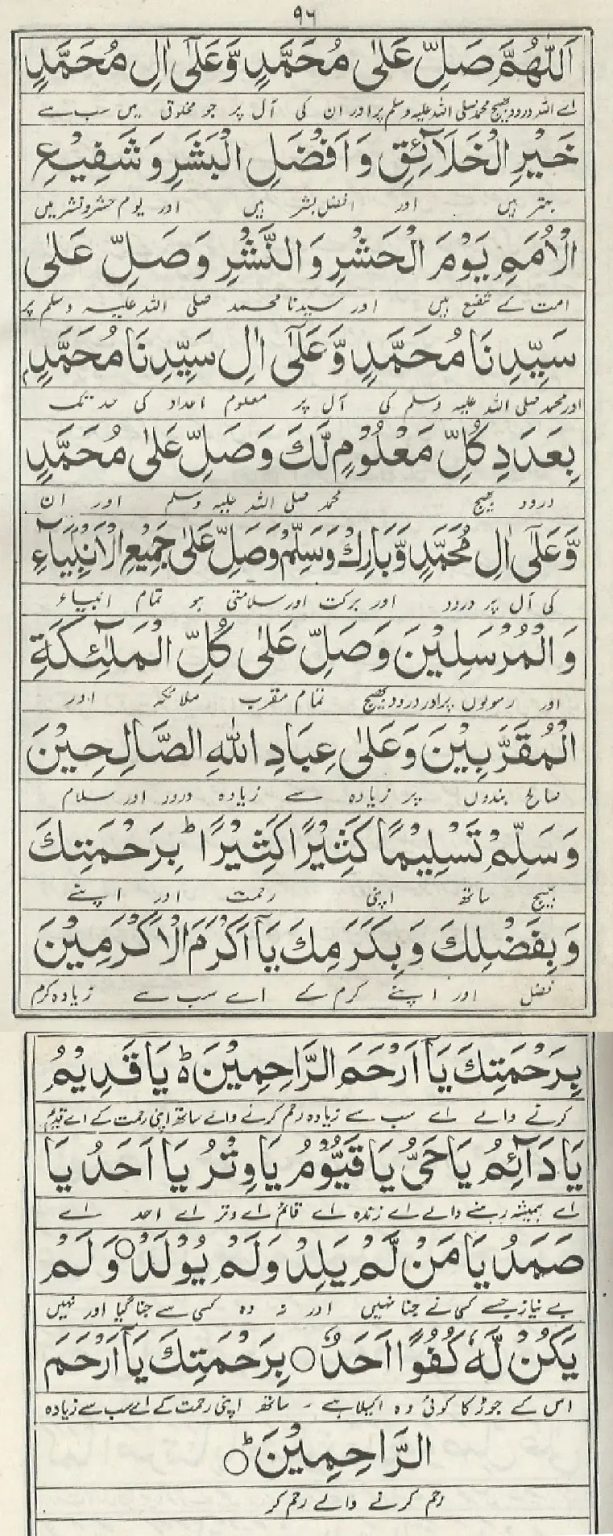 ۹۶
اَللّٰهُمَّ صَلِّ عَلٰى مُحَمَّدٍ وَّعَلٰٓى اٰلِ مُحَمَّدٍ
اے اللہ درود بھیج محمد صلی اللہ علیہ وسلم پر اور ان کی آل پر جو مخلوق میں سب سے
خَيْرِ الْخَلَآئِقِ وَاَفْضَلِ الْبَشَرِ وَشَفِيْعِ
بہتر ہیں اور افضل بشر ہیں اور یوم حشر و نشر میں
الْاُمَمِ يَوْمَ الْحَشْرِ وَالنَّشْرِ وَصَلِّ عَلٰى
امت کے شفیع ہیں اور سیدنا محمد صلی اللہ علیہ وسلم پر
سَيِّدِنَا مُحَمَّدٍ وَّعَلٰٓى اٰلِ سَيِّدِنَا مُحَمَّدٍ
اور محمد صلی اللہ علیہ وسلم کی آل پر معلوم اعداد کی حد تک
بِعَدَدِ كُلِّ مَعْلُوْمٍ لَّكَ وَصَلِّ عَلٰى مُحَمَّدٍ
درود بھیج محمد صلی اللہ علیہ وسلم اور ان
وَّعَلٰٓى اٰلِ مُحَمَّدٍ وَّبَارِكْ وَسَلِّمْ وَصَلِّ عَلٰى جَمِيْعِ الْاَنْبِيَآءِ
کی آل پر درود اور برکت اور سلامتی ہو تمام انبیاء
وَالْمُرْسَلِيْنَ وَصَلِّ عَلٰى كُلِّ الْمَلٰٓئِكَةِ
اور رسولوں پر اور درود بھیج تمام مقرب ملائکہ اور
الْمُقَرَّبِيْنَ وَعَلٰى عِبَادِ اللّٰهِ الصَّالِحِيْنَ
صالح بندوں پر زیادہ سے زیادہ درود اور سلام
وَسَلِّمْ تَسْلِيْمًا كَثِيْرًا كَثِيْرًا ؕ بِرَحْمَتِكَ
بھیج ساتھ اپنی رحمت اور اپنے
وَبِفَضْلِكَ وَبِكَرَمِكَ يَآ اَكْرَمَ الْاَكْرَمِيْنَ
فضل اور اپنے کرم کے اے سب سے زیادہ کرم
بِرَحْمَتِكَ يَآ اَرْحَمَ الرَّاحِمِيْنَ ؕ يَا قَدِيْمُ
کرنے والے اے سب سے زیادہ رحم کرنے والے ساتھ اپنی رحمت کے اے قدیم
يَا دَآئِمُ يَا حَىُّ يَا قَيُّوْمُ يَا وِتْرُ يَا اَحَدُ يَا
اے ہمیشہ رہنے والے اے زندہ اے قائم اے وتر اے احد اے
صَمَدُ يَا مَنْ لَّمْ يَلِدْ وَلَمْ يُوْلَدْ ۙ وَلَمْ
بے نیاز جسے کسی نے جنا نہیں اور نہ وہ کسی سے جنا گیا اور نہیں
يَكُنْ لَّهٗ كُفُوًا اَحَدٌ ۝ بِرَحْمَتِكَ يَآ اَرْحَمَ
اس کے جوڑ کا کوئی وہ اکیلا ہے ۔ ساتھ اپنی رحمت کے اے سب سے زیادہ
الرَّاحِمِيْنَ ؕ
رحم کرنے والے رحم کر